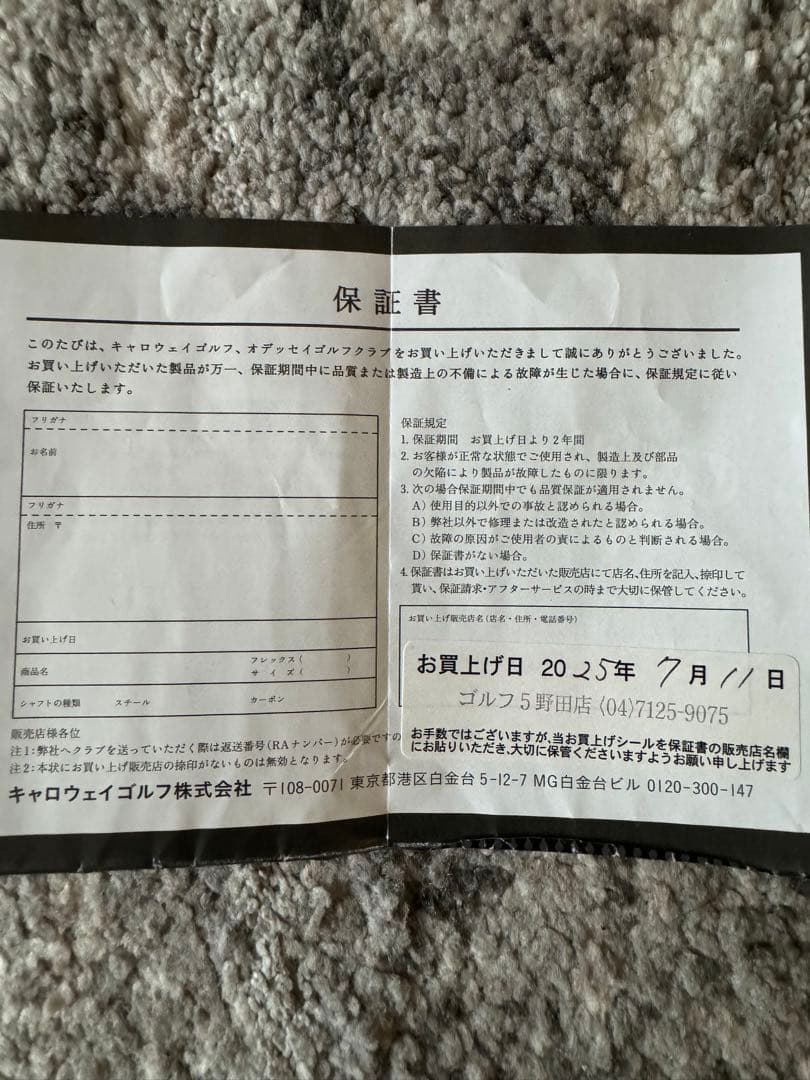 保証書
このたびは、キャロウェイゴルフ、オデッセイゴルフクラブをお買い上げいただきまして誠にありがとうございました。
お買い上げいただいた製品が万一、保証期間中に品質または製造上の不備による故障が生じた場合に、保証規定に従い
保証いたします。
フリガナ
お名前
フリガナ
住所 〒
お買い上げ日
商品名
フレックス( )
サイズ( )
シャフトの種類 スチール カーボン
保証規定
1. 保証期間 お買上げ日より2年間
2. お客様が正常な状態でご使用され、製造上及び部品
の欠陥により製品が故障したものに限ります。
3. 次の場合保証期間中でも品質保証が適用されません。
A) 使用目的以外での事故と認められる場合。
B) 弊社以外で修理または改造されたと認められる場合。
C) 故障の原因がご使用者の責によるものと判断される場合。
D) 保証書がない場合。
4. 保証書はお買い上げいただいた販売店にて店名、住所を記入、捺印して
貰い、保証請求・アフターサービスの時まで大切に保管してください。
お買い上げ販売店名(店名・住所・電話番号)
お買上げ日 2025年 7月 11日
ゴルフ5野田店 (04)7125-9075
お手数ではございますが、当お買上げシールを保証書の販売店名欄
にお貼りいただき、大切に保管くださいますようお願い申し上げます
販売店様各位
注1:弊社へクラブを送っていただく際は返送番号(RAナンバー)が必要ですの
注2:本状にお買い上げ販売店の捺印がないものは無効となります。
キャロウェイゴルフ株式会社 〒108-0071 東京都港区白金台5-12-7 MG白金台ビル 0120-300-147